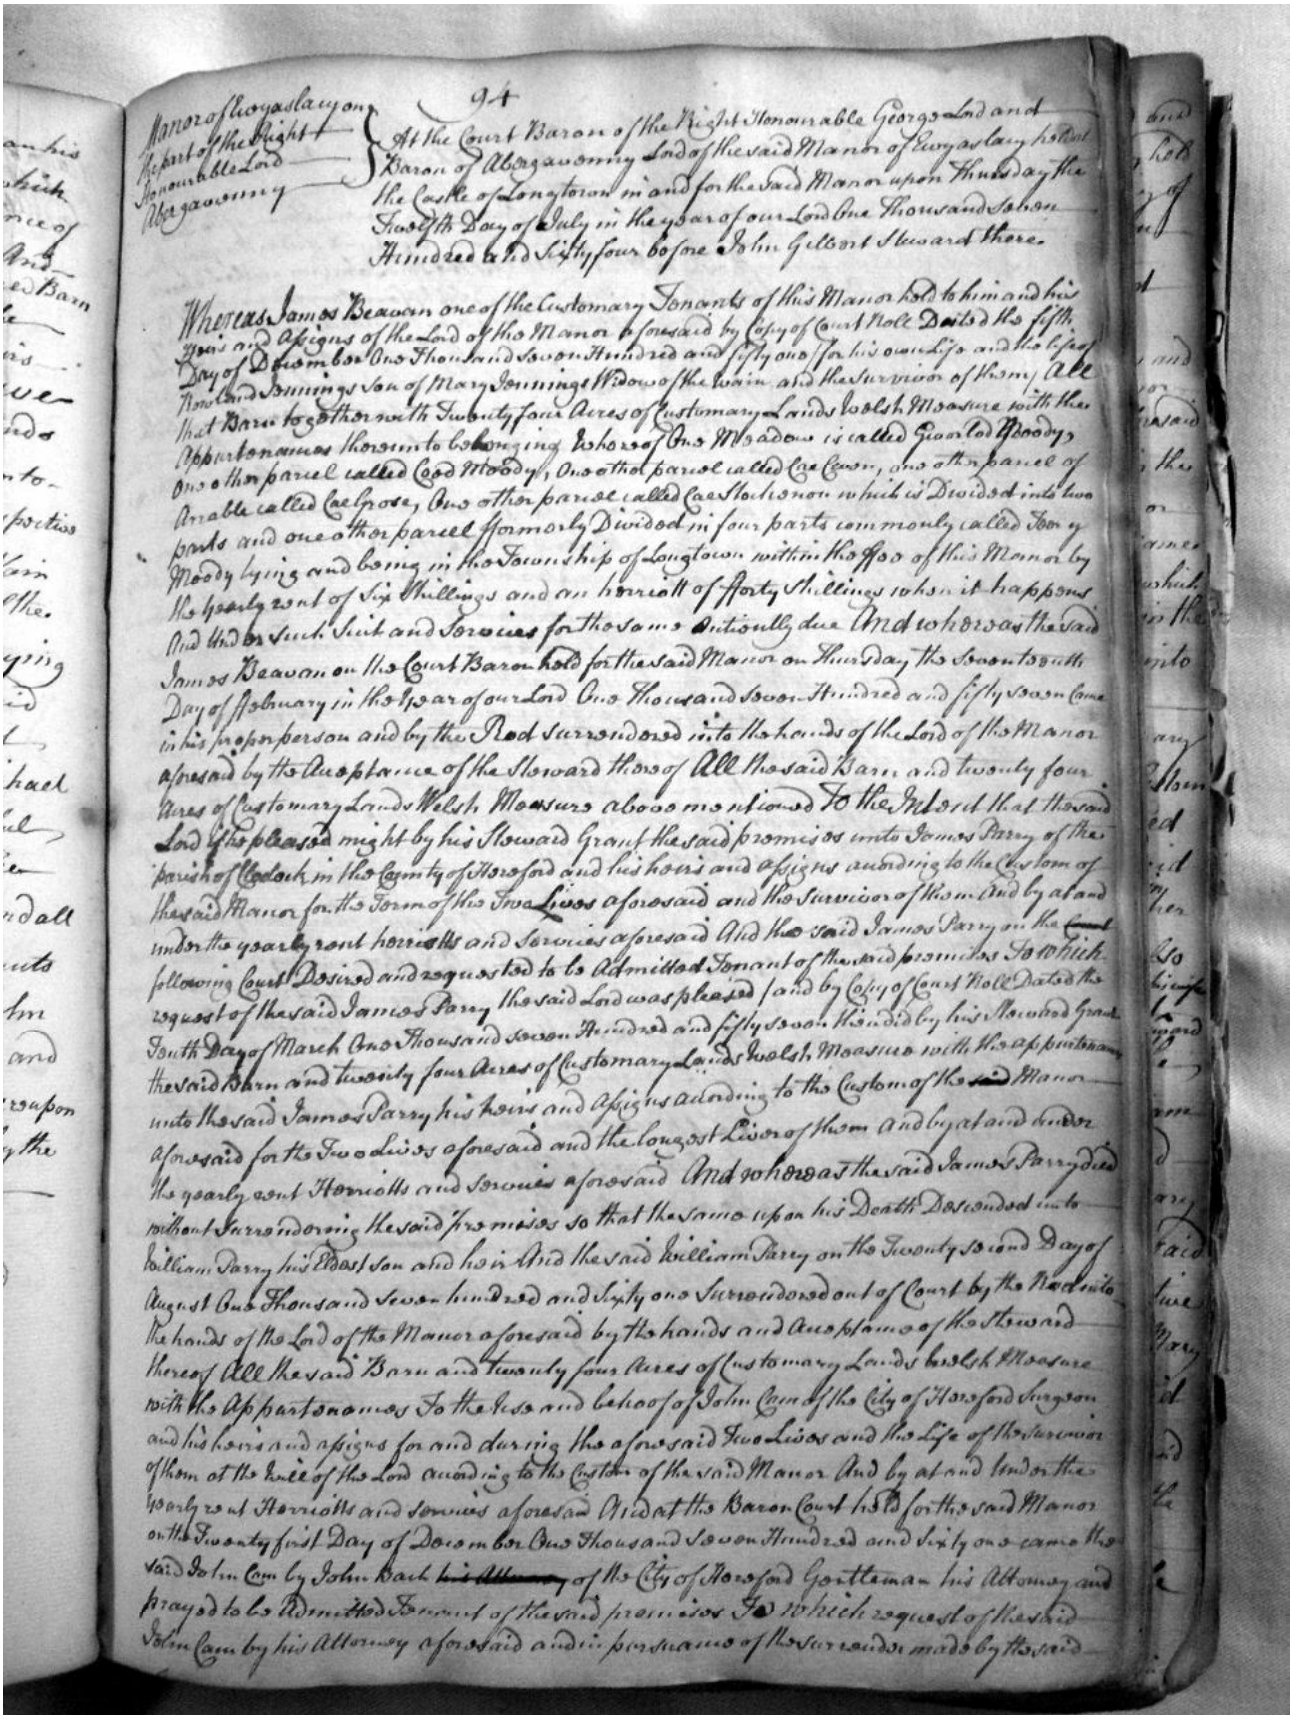 94
Manor of Ewyaslacy on
the part of the Right
Honourable Lord
Abergavenny
At the Court Baron of the Right Honourable George Lord and
Baron of Abergavenny Lord of the said Manor of Ewyaslacy held at
the Castle of Longtown in and for the said Manor upon Thursday the
Twelfth Day of July in the year of our Lord One Thousand Seven
Hundred and Sixty four before John Gilbert Steward there
Whereas James Beavan one of the Customary Tenants of this Manor held to him and his
Heirs and Assigns of the Lord of the Manor aforesaid by Copy of Court Roll Dated the fifth
Day of December One Thousand Seven Hundred and fifty one (for his own Life and the life of
Rowland Jennings Son of Mary Jennings Widow of the Wain and the Survivor of them) All
that Barn together with Twenty four Acres of Customary Lands Welsh Measure with the
Appurtenances thereunto belonging Whereof One Meadow is called Gworlod Moody,
One other parcel called Coed Moody, One other parcel called Cae Cwen, one other parcel of
Arrable called Cae Grose, One other parcel called Cae Stockenon which is Divided into two
parts and one other parcel fformerly Divided in four parts commonly called
Moody lying and being in the Township of Longtown within the ffee of this Manor by
the Yearly rent of Six Shillings and an herriott of fforty Shillings when it happens
And Under such Suit and Services for the same Antiently due And whereas the said
James Beavan on the Court Baron held for the said Manor on Thursday the Seventeenth
Day of ffebruary in the Year of our Lord One Thousand Seven Hundred and fifty seven Came
in his proper person and by the Rod Surrendered into the hands of the Lord of the Manor
aforesaid by the Acceptance of the Steward thereof All the said Barn and twenty four
Acres of Customary Lands Welsh Measure above mentioned To the Intent that the said
Lord if he pleased might by his Steward Grant the said premises unto James Parry of the
parish of Clodock in the County of Hereford and his heirs and assigns according to the Custom of
the said Manor for the Term of the Two Lives aforesaid and the Survivor of them And by at and
under the yearly rent herriotts and Services aforesaid And the said James Parry on the
following Court Desired and requested to be Admitted Tenant of the said premises To which
request of the said James Parry the said Lord was pleased / and by Copy of Court Roll Dated the
Tenth Day of March One Thousand seven Hundred and fifty seven then did by his Steward Grant
the said Barn and twenty four Acres of Customary Lands Welsh Measure with the appurtenances
unto the said James Parry his heirs and Assigns according to the Custom of the said Manor
aforesaid for the Two Lives aforesaid and the longest Liver of them And by at and under
the yearly rent Herriotts and Services aforesaid And whereas the said James Parry died
without Surrendering the said premises so that the same upon his Death Descended unto
William Parry his Eldest son and heir And the said William Parry on the Twenty second Day of
August One Thousand Seven hundred and Sixty one Surrendered out of Court by the Rod into
the hands of the Lord of the Manor aforesaid by the hands and Acceptance of the Steward
thereof All the said Barn and twenty four Acres of Customary Lands Welsh Measure
with the Appurtenances To the Use and behoof of John Cam of the City of Hereford Surgeon
and his heirs and assigns for and during the aforesaid Two Lives and the Life of the Survivor
of them at the Will of the Lord according to the Custom of the said Manor And by at and Under the
yearly rent Herriotts and services aforesaid And at the Baron Court held for the said Manor
on the Twenty first Day of December One Thousand Seven Hundred and Sixty one came the
said John Cam by John Bach his Attorney of the City of Hereford Gentleman his Attorney and
prayed to be Admitted Tenant of the said premises To which request of the said
John Cam by his Attorney aforesaid and in pursuance of the surrender made by the said